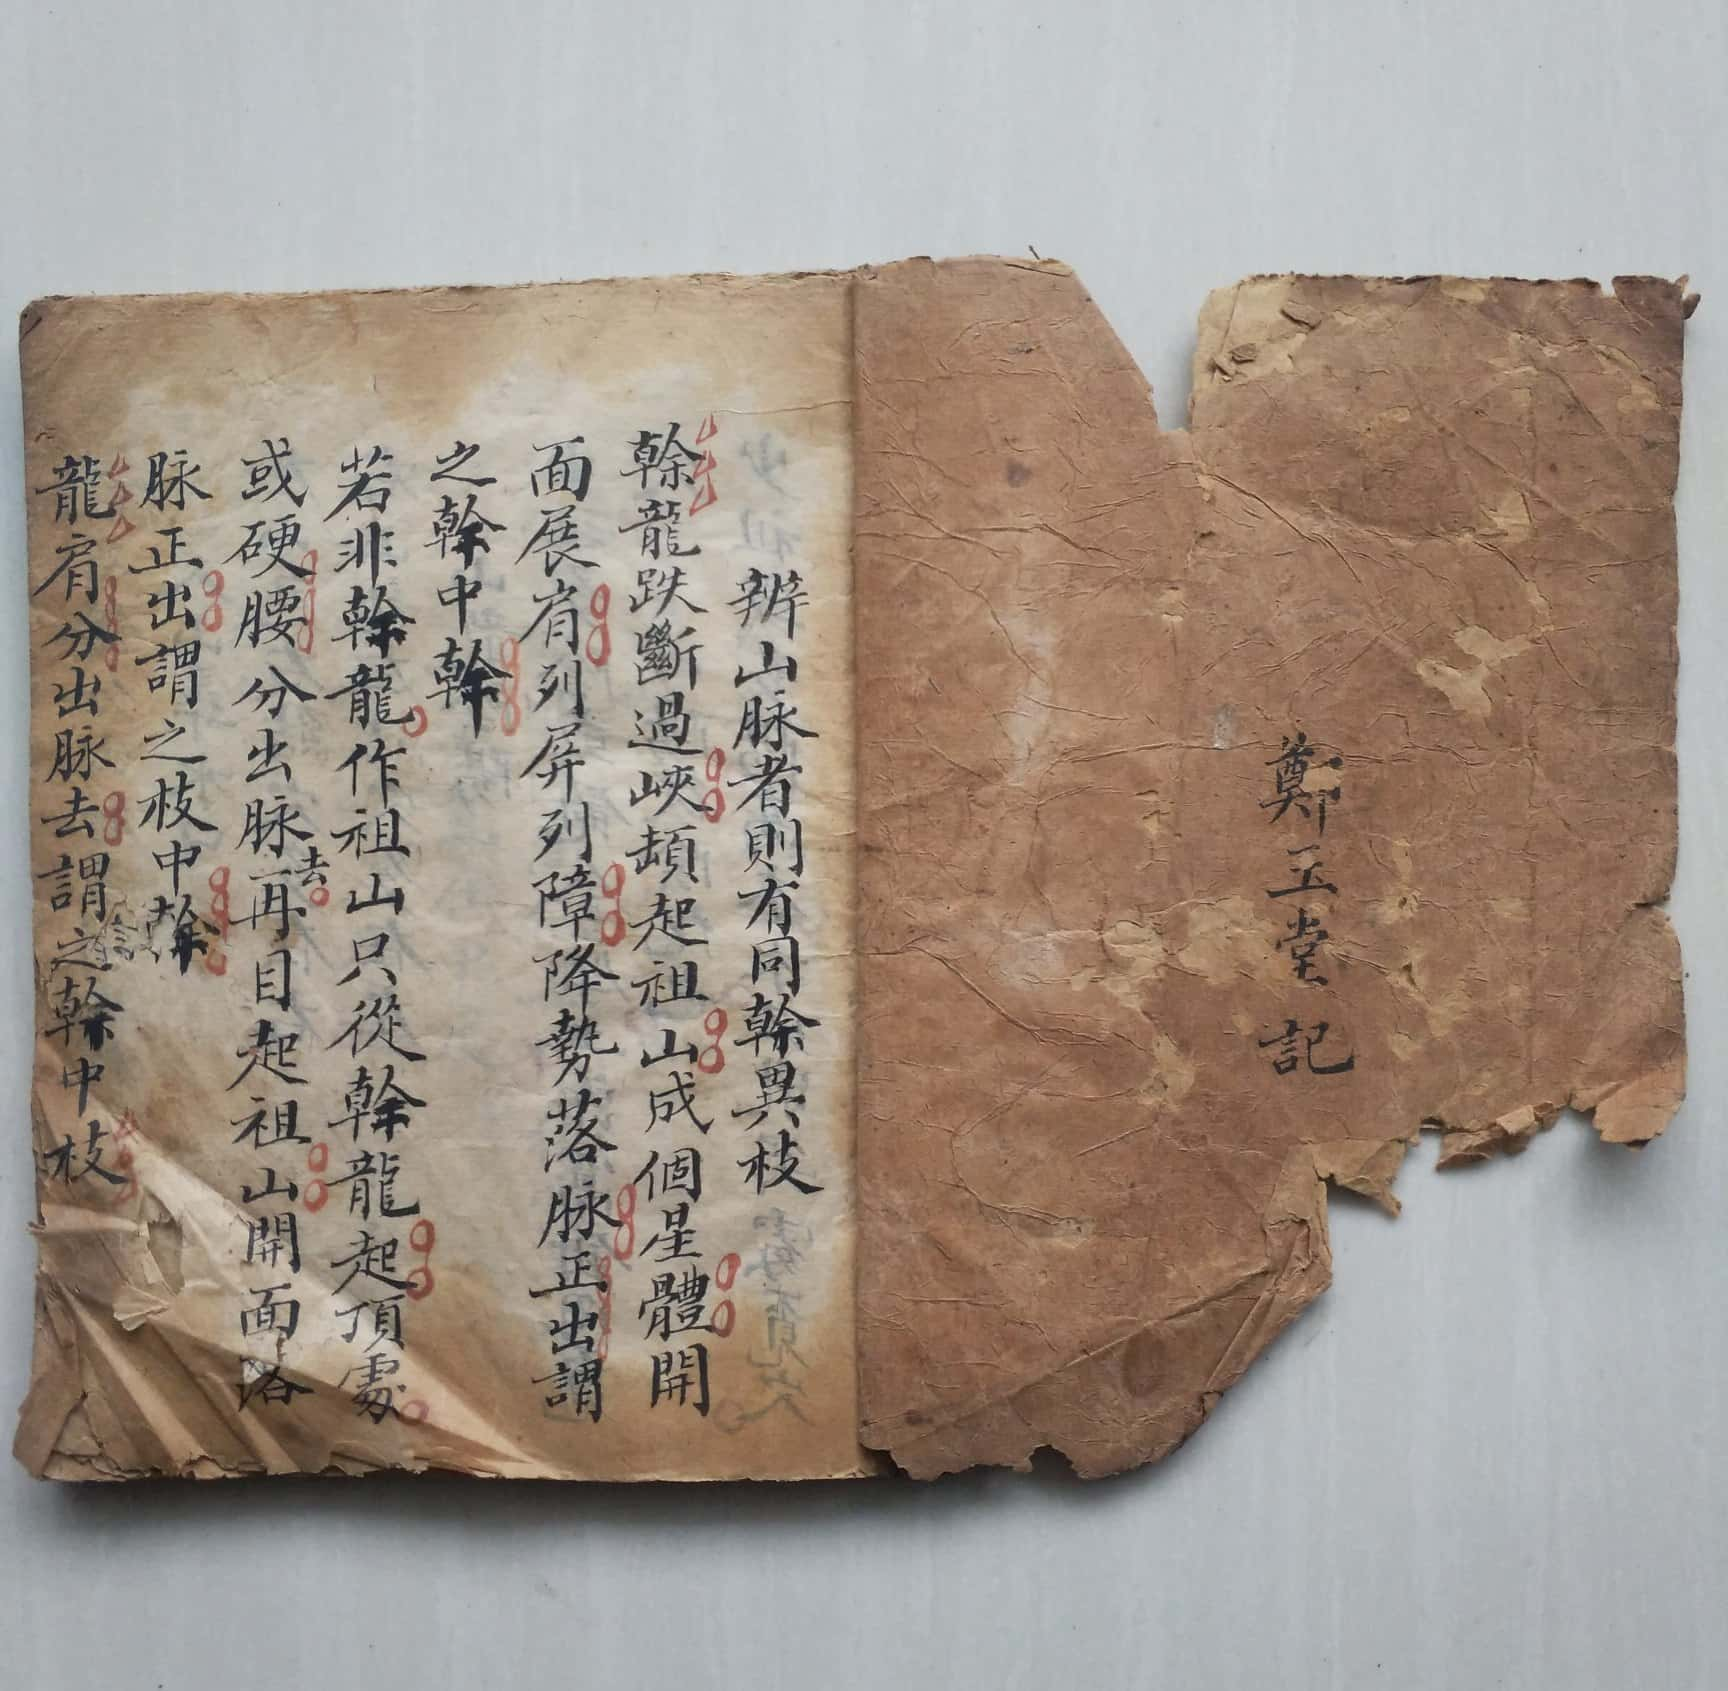 鄭玉堂記
辨山脉者則有同榦異枝
榦龍跌斷過峽頓起祖山成個星體開
面展肩列屏列障降勢落脉正出謂
之榦中榦
若非榦龍作祖山只從榦龍起頂處
或硬腰分出脉去再目起祖山開面落
脉正出謂之枝中榦
龍肩分出脉去謂之榦中枝